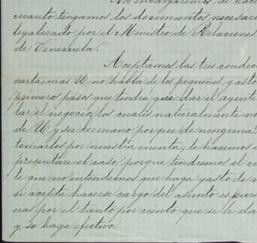 No encargaremos de hace
cuanto tengamos los documentos necesar
legalizado por el Ministro de Relaciones
de Venezuela.
Aceptamos las tres condic
carta, mas U. no habla de los pequeños gasto
primeros pasos que tendrá que dar el agente
lar el negocio, los cuales naturalmente no
de U. y su hermano por que de ninguna
tomarlos por nuestra cuenta, le hacemos
presente el caso, porque tendremos el c
te que no intendemos que haga gasto de n
si acepta hacerse cargo del asunto es para
nas por el tanto por ciento que se le da
y se haga efectivo.